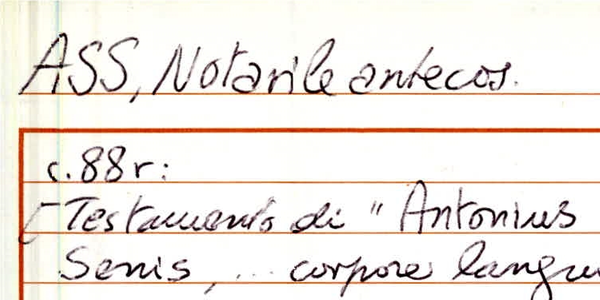 ASS, Notarile antecos.
c.88r:
[Testamento di "Antonius
Senis, ... corpore langu